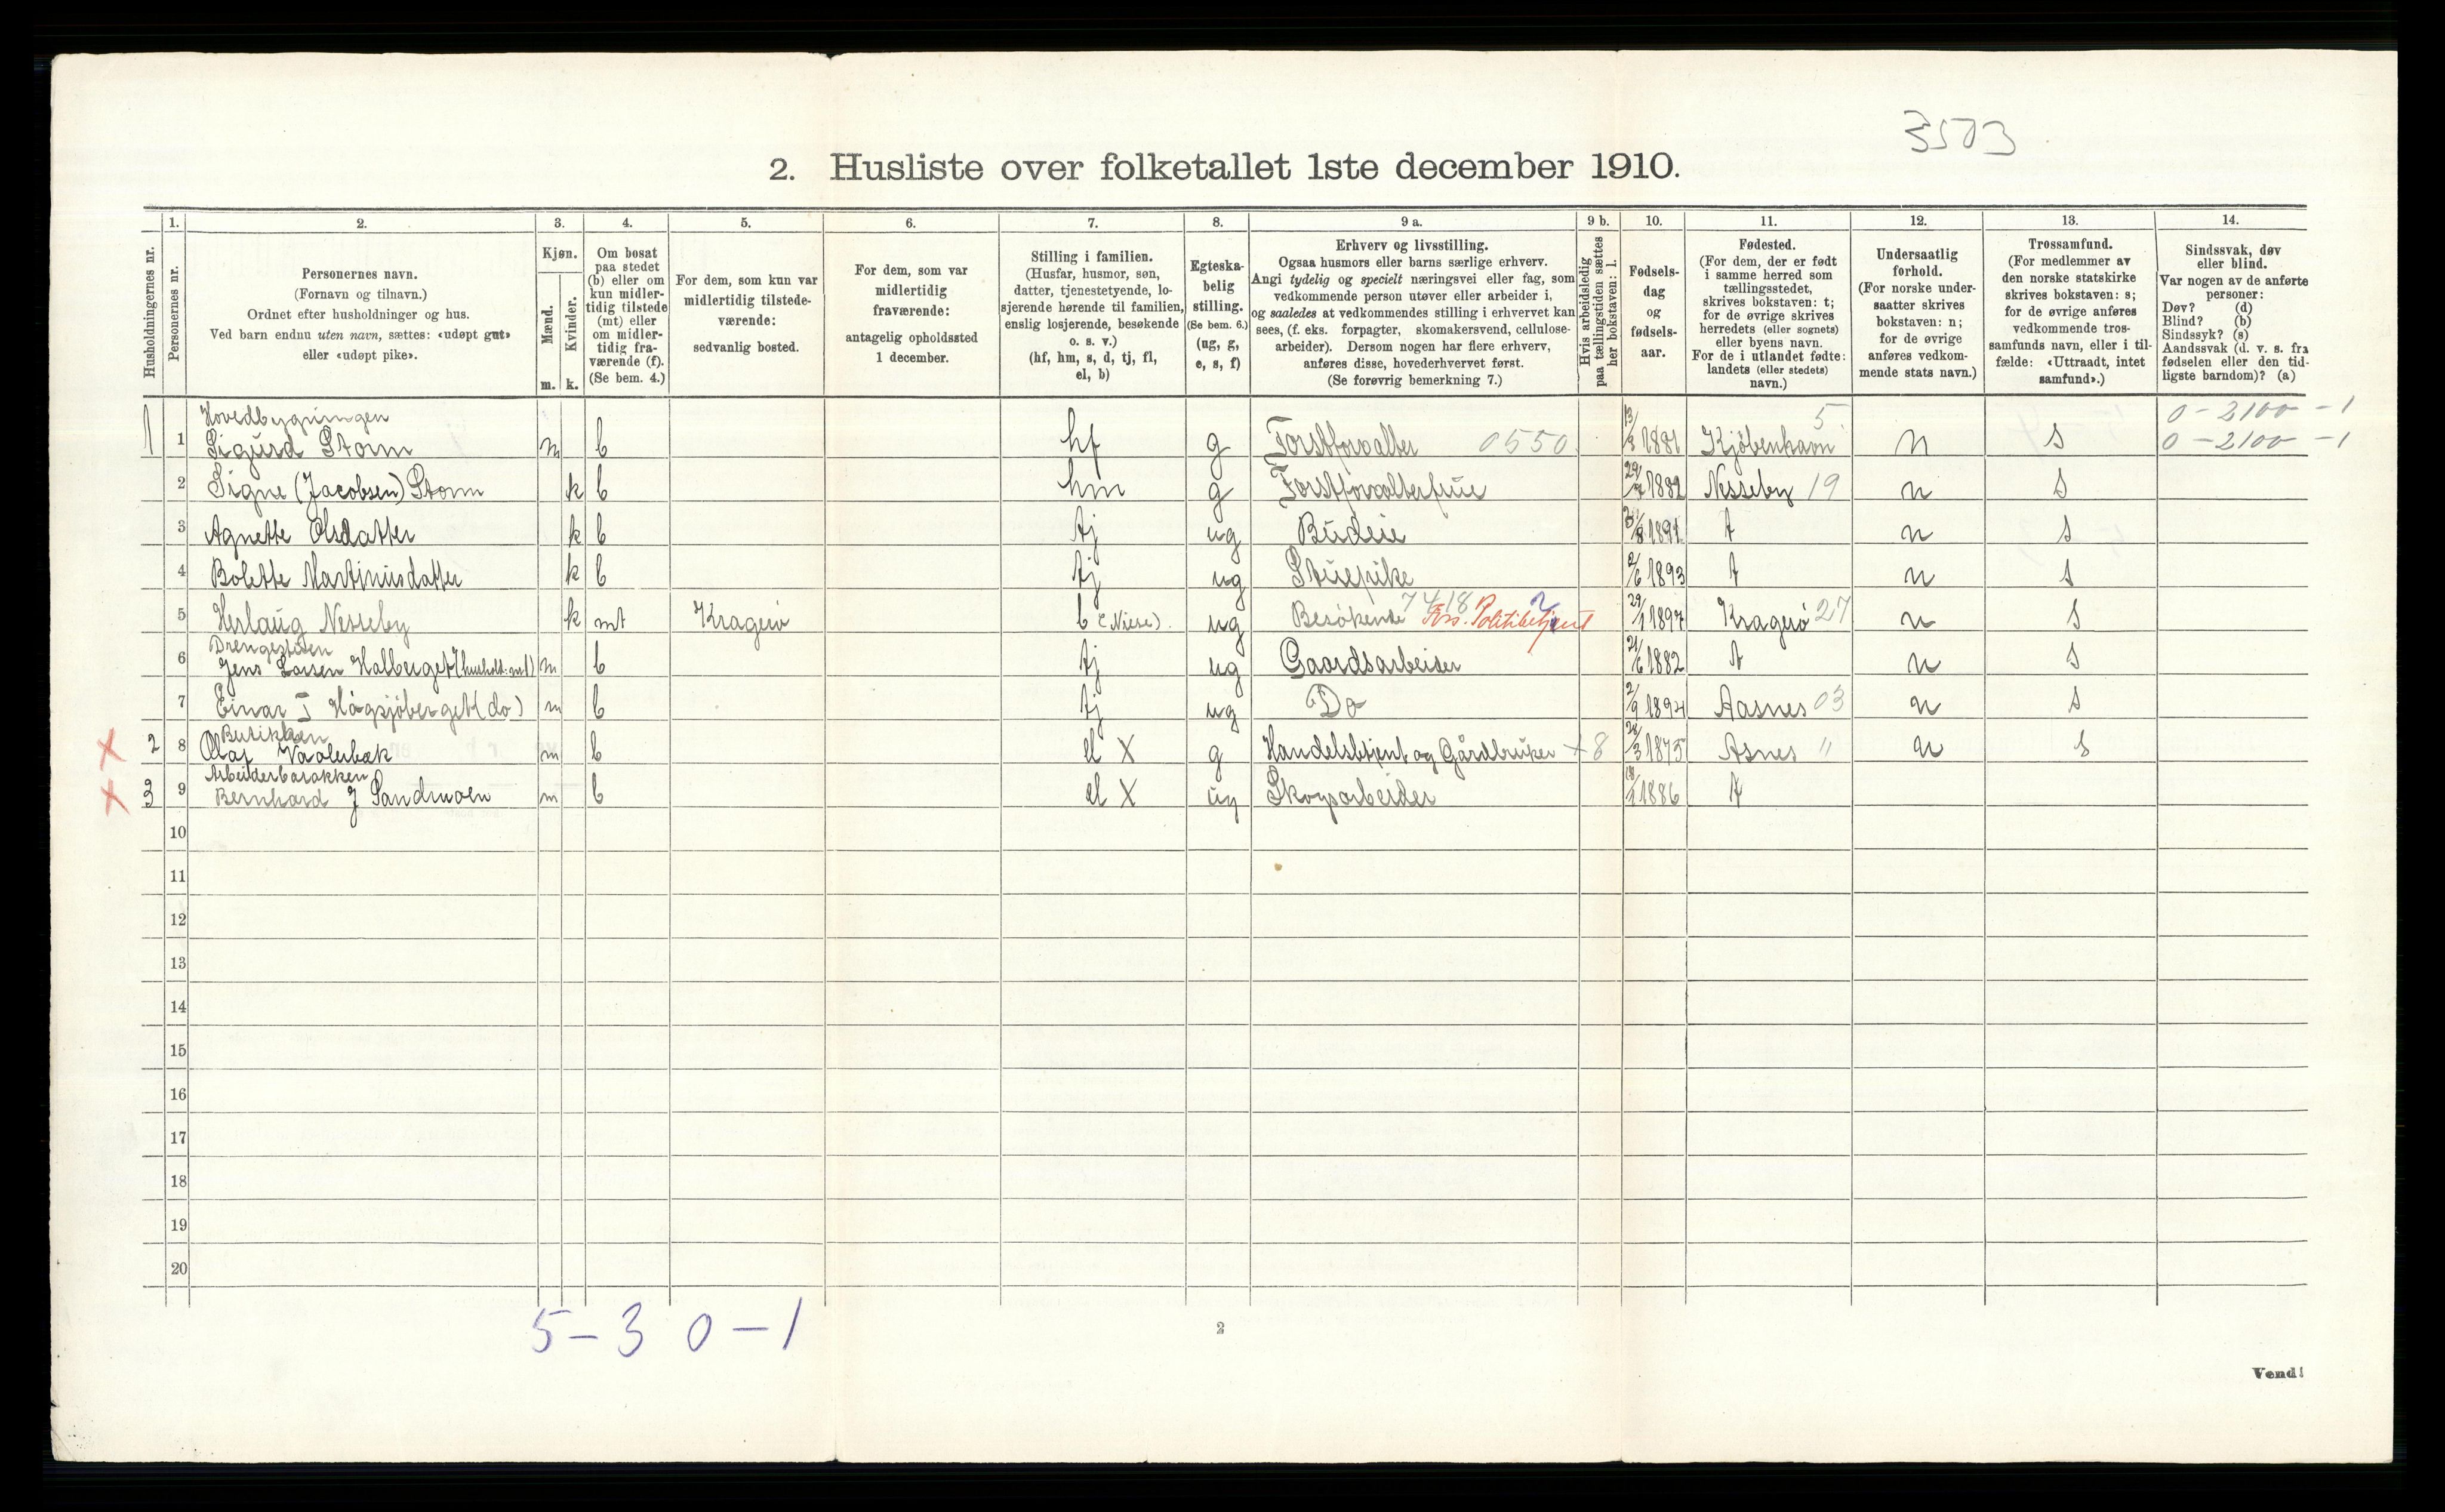 3503
2. Husliste over folketallet 1ste december 1910.
Husholdningernes nr.
1. Personernes nr.
2. Personernes navn.
(Fornavn og tilnavn.)
Ordnet efter husholdninger og hus.
Ved barn endnu uten navn, sættes: «udøpt gut»
eller «udøpt pike».
3. Kjøn.
Mænd. m.
Kvinder. k.
4. Om bosat
paa stedet
(b) eller om
kun midler-
tidig tilstede
(mt) eller
om midler-
tidig fra-
værende (f).
(Se bem. 4.)
5. For dem, som kun var
midlertidig tilstede-
værende:
sedvanlig bosted.
6. For dem, som var
midlertidig
fraværende:
antagelig opholdssted
1 december.
7. Stilling i familien.
(Husfar, husmor, søn,
datter, tjenestetyende, lo-
sjerende hørende til familien,
enslig losjerende, besøkende
o. s. v.)
(hf, hm, s, d, tj, fl,
el, b)
8. Egteska-
belig
stilling.
(Se bem. 6.)
(ug, g,
e, s, f)
9 a. Erhverv og livsstilling.
Ogsaa husmors eller barns særlige erhverv.
Angi tydelig og specielt næringsvei eller fag, som
vedkommende person utøver eller arbeider i,
og saaledes at vedkommendes stilling i erhvervet kan
sees, (f. eks. forpagter, skomakersvend, cellulose-
arbeider). Dersom nogen har flere erhverv,
anføres disse, hovederhvervet først.
(Se forøvrig bemerkning 7.)
9 b. Hvis arbeidsledig
paa tællingstiden sættes
her bokstaven: l.
10. Fødsels-
dag
og
fødsels-
aar.
11. Fødested.
(For dem, der er født
i samme herred som
tællingsstedet,
skrives bokstaven: t;
for de øvrige skrives
herredets (eller sognets)
eller byens navn.
For de i utlandet fødte:
landets (eller stedets)
navn.)
12. Undersaatlig
forhold.
(For norske under-
saatter skrives
bokstaven: n;
for de øvrige
anføres vedkom-
mende stats navn.)
13. Trossamfund.
(For medlemmer av
den norske statskirke
skrives bokstaven: s;
for de øvrige anføres
vedkommende tros-
samfunds navn, eller i til-
fælde: «Uttraadt, intet
samfund».)
14. Sindssvak, døv
eller blind.
Var nogen av de anførte
personer:
Døv? (d)
Blind? (b)
Sindssyk? (s)
Aandssvak (d. v. s. fra
fødselen eller den tid-
ligste barndom)? (a)
Hovedbygningen 5 0-2100-1
1 1 Sigurd Storm m b hf g Forstforvalter 0550 13/8 1881 Kjöbenhavn n s 0-2100-1
2 Signe (Jacobsen) Storm k b hm g Forstforvalterfrue 29/7 1882 Nesseby 19 n s
3 Agnette Olsdatter k b tj ug Budeie 1891 t n s
4 Bolette Martinusdatter k b tj ug Stuepike 2/6 1893 t n s
5 Herlaug Nesseby k mt Kragerö b (Niese). ug Besökende 7418 Fors. Politibetjent 29/1 1897 Kragerö 27 n s
Drengestuen
6 Jens Larsen Halberget (hushold: nr1) m b tj ug Gaardsarbeider 21/6 1882 t n s
7 Einar J Hågsjöberget (do) m b tj ug Do 2/9 1894 Aasnes 03 n s
Butikken
2 8 Olaf Vaalerbæk m b el X g Handelsbetjent og Gårdbruker + 8 28/3 1875 Asnes " n s
Arbeiderbarakken
3 9 Bernhard J Sandmoen m b el X ug Skogsarbeider 1886 t
10
11
12
13
14
15
16
17
18
19
20
5-3 0-1
2
Vend!